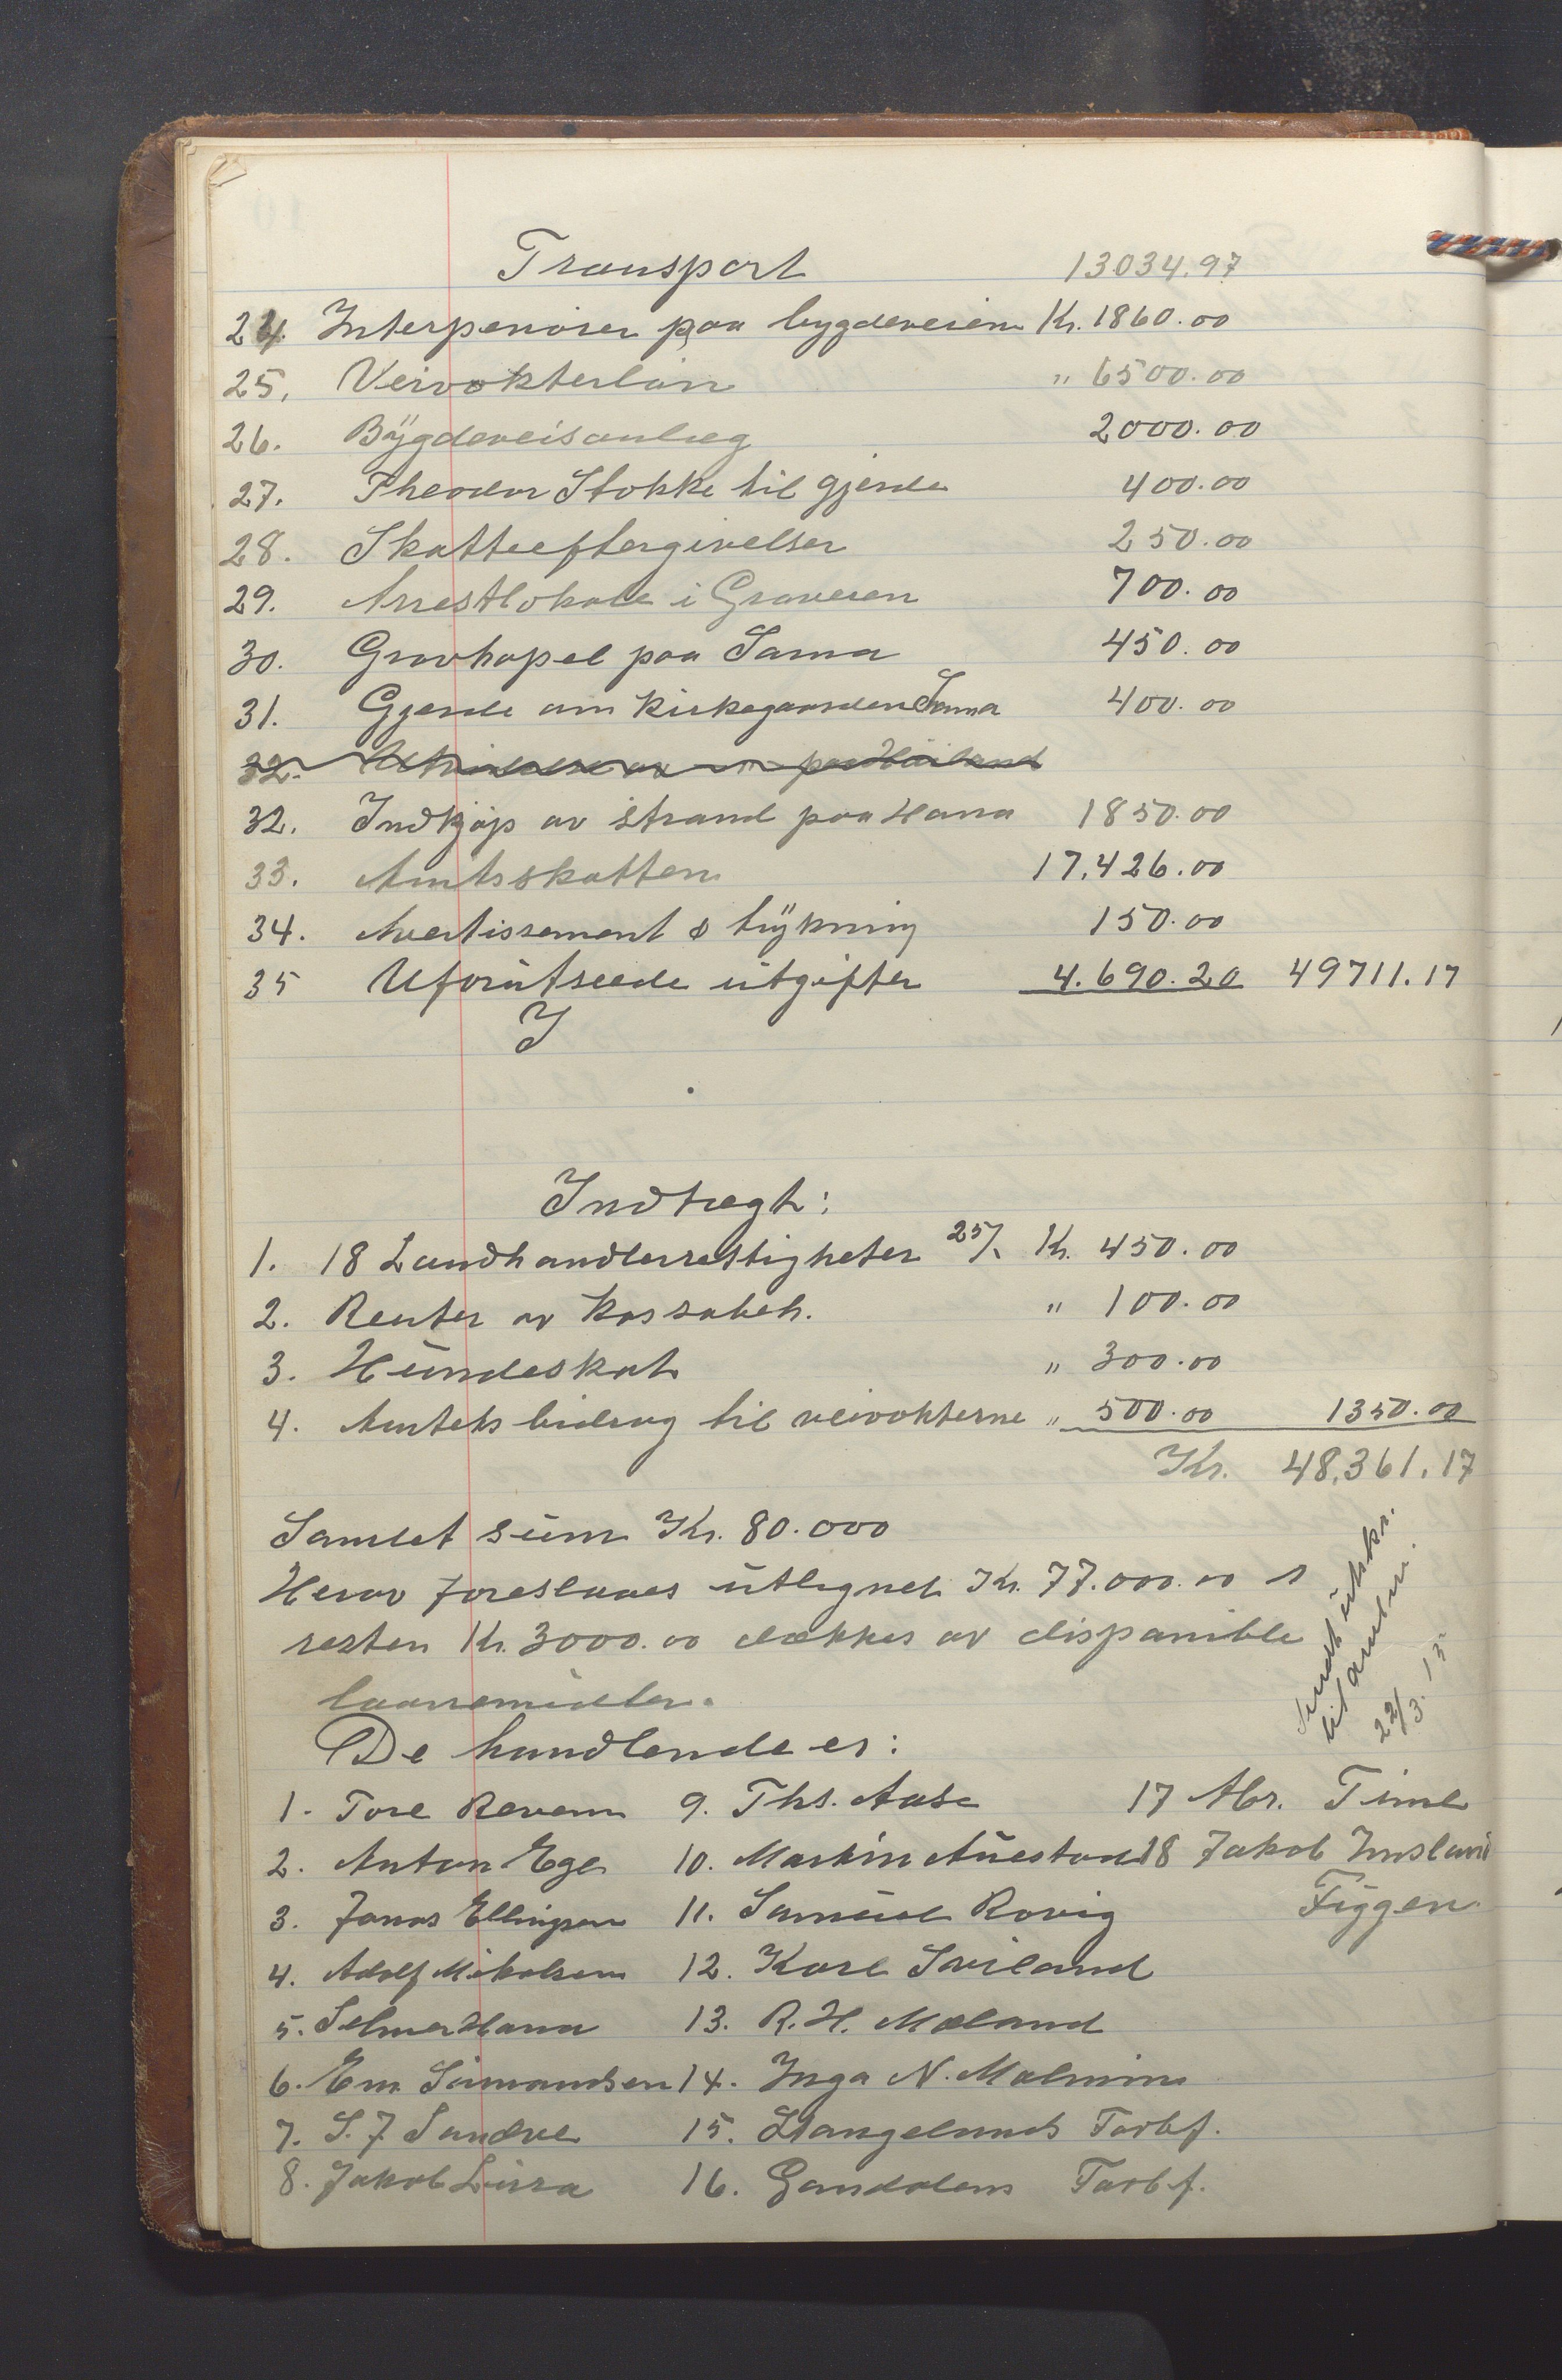 Transport 13034.97
24. Interpenörer paa bygdeveien Kr. 1860.00
25. Veivokterlön " 6500.00
26. Bygdeveisanlæg 2000.00
27. Theodor Stokke til gjerde 400.00
28. Skatteeftergivelser 250.00
29. Arrestlokale i Graveren 700.00
30. Gravkapel paa Soma 450.00
31. Gjerde om kirkegaarden Soma 400.00
32. paa Höiland
32. Indkjöp av strand paa Hana 1850.00
33. Amtsskatten 17.426.00
34. Avertissement & trykning 150.00
35 Uforutseede utgifter 4.690.20 49711.17
I
Indtægt:
1. 18 Landhandlerrettigheter 25/ Kr. 450.00
2. Renter av kassabeh. " 100.00
3. Hundeskat " 300.00
4. Amtets bidrag til veivokterne " 500.00 1350.00
Kr. 48,361.17
Samlet sum Kr. 80.000
Herav foreslaaes utlignet Kr. 77.000.00 &
resten Kr. 3000.00 dækkes av disponible
laanemidler.
Sendt utskr.
til amtm.
22/3. 13
De handlende er:
1. Tore Revem 9. Ths. Aase 17 Abr. Time
2. Anton Ege 10. Martin Auestad 18 Jakob Imsland
3. Jonas Ellingsen 11. Samuel Rovig Figgen
4. Adolf Mikalsen 12. Karl Sviland
5. Selmer Hana 13. R. H. Mæland
6. Em. Simonsen 14. Inga N. Malmin
7. S. J. Sandve 15. Stangelands Forbf.
8. Jakob Lura 16. Gandalens Forbf.